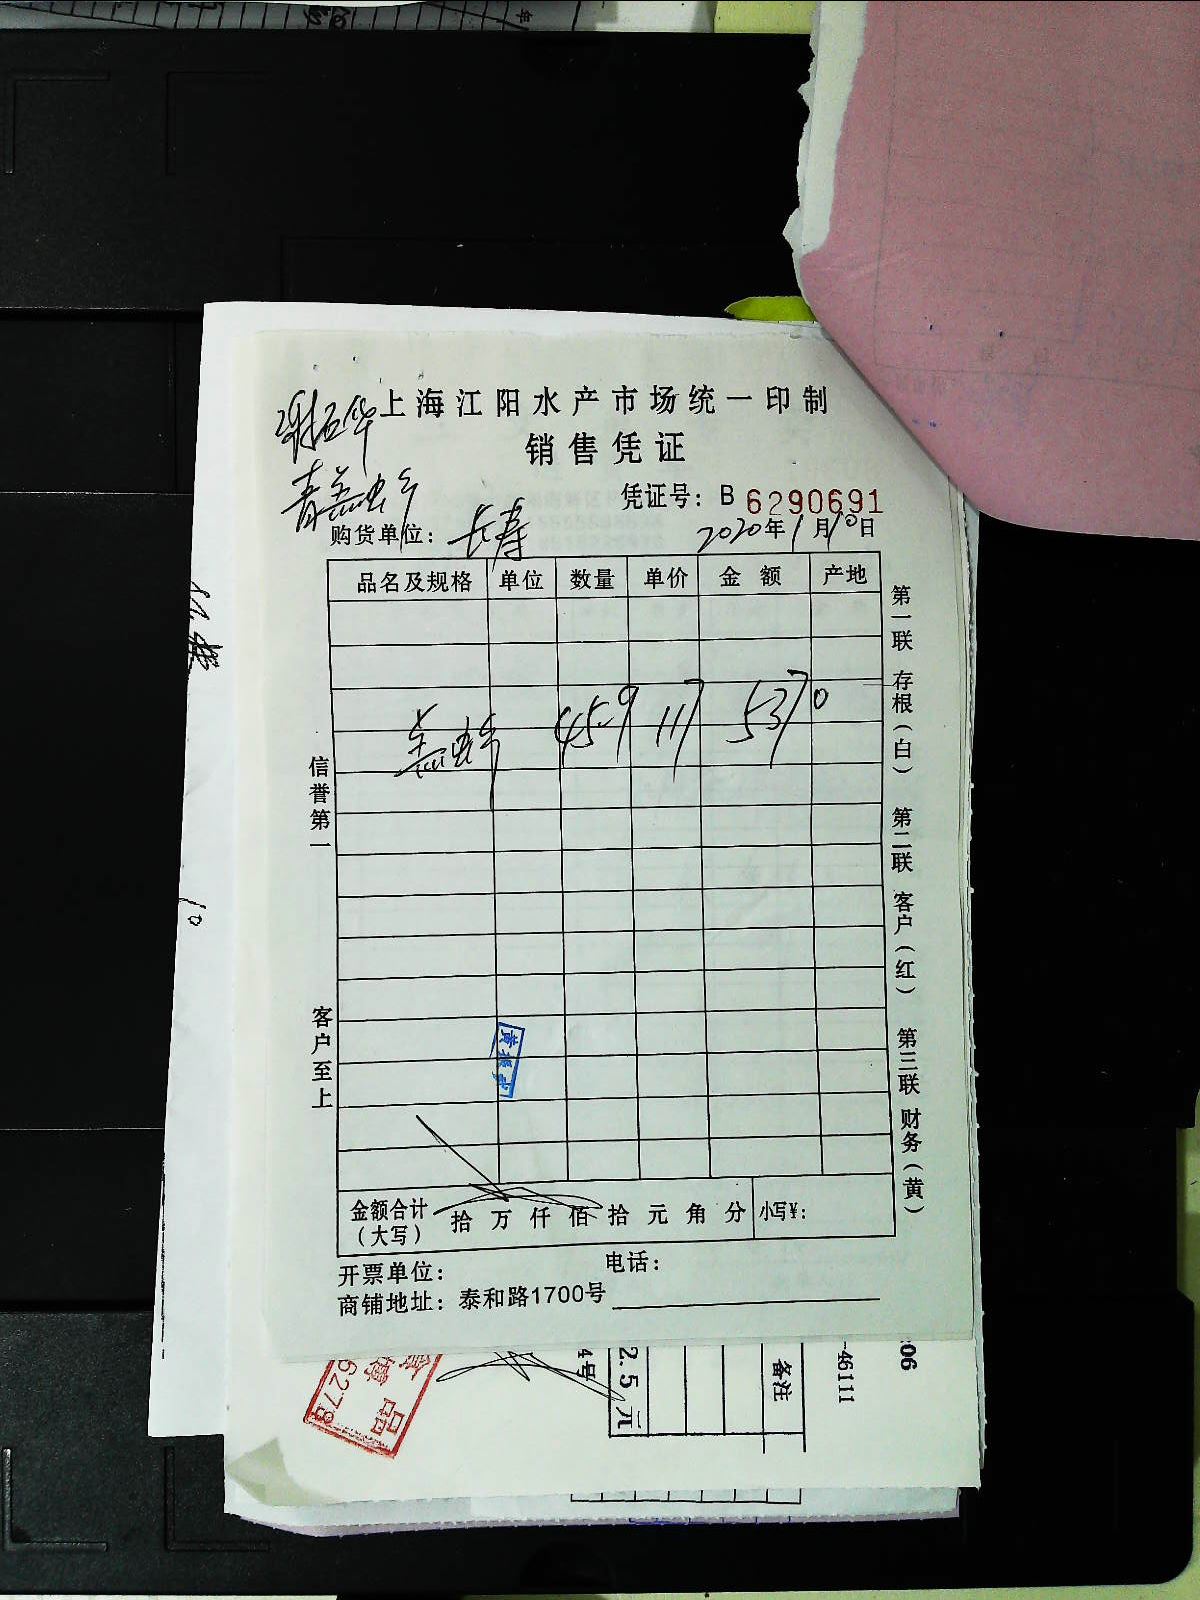 上海江阳水产市场统一印制
销售凭证
凭证号：B 6290691
购货单位：长寿
2020年1月10日
品名及规格 单位 数量 单价 金额 产地
45.9 117 5370
信誉第一
客户至上
第一联 存根（白） 第二联 客户（红） 第三联 财务（黄）
金额合计（大写） 拾 万 仟 佰 拾 元 角 分 小写¥：
开票单位：
电话：
商铺地址：泰和路1700号
4号
2.5元
备注
-46111
:06
品
6278
10